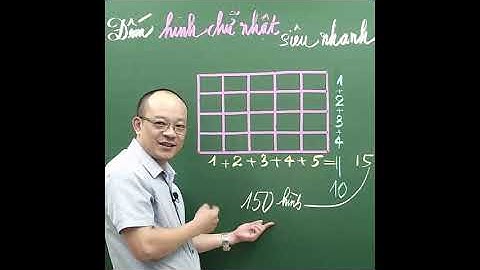 Đếm hình chữ nhật siêu nhanh
1+2+3+4
1+2+3+4+5= 15
= 10
150 hình